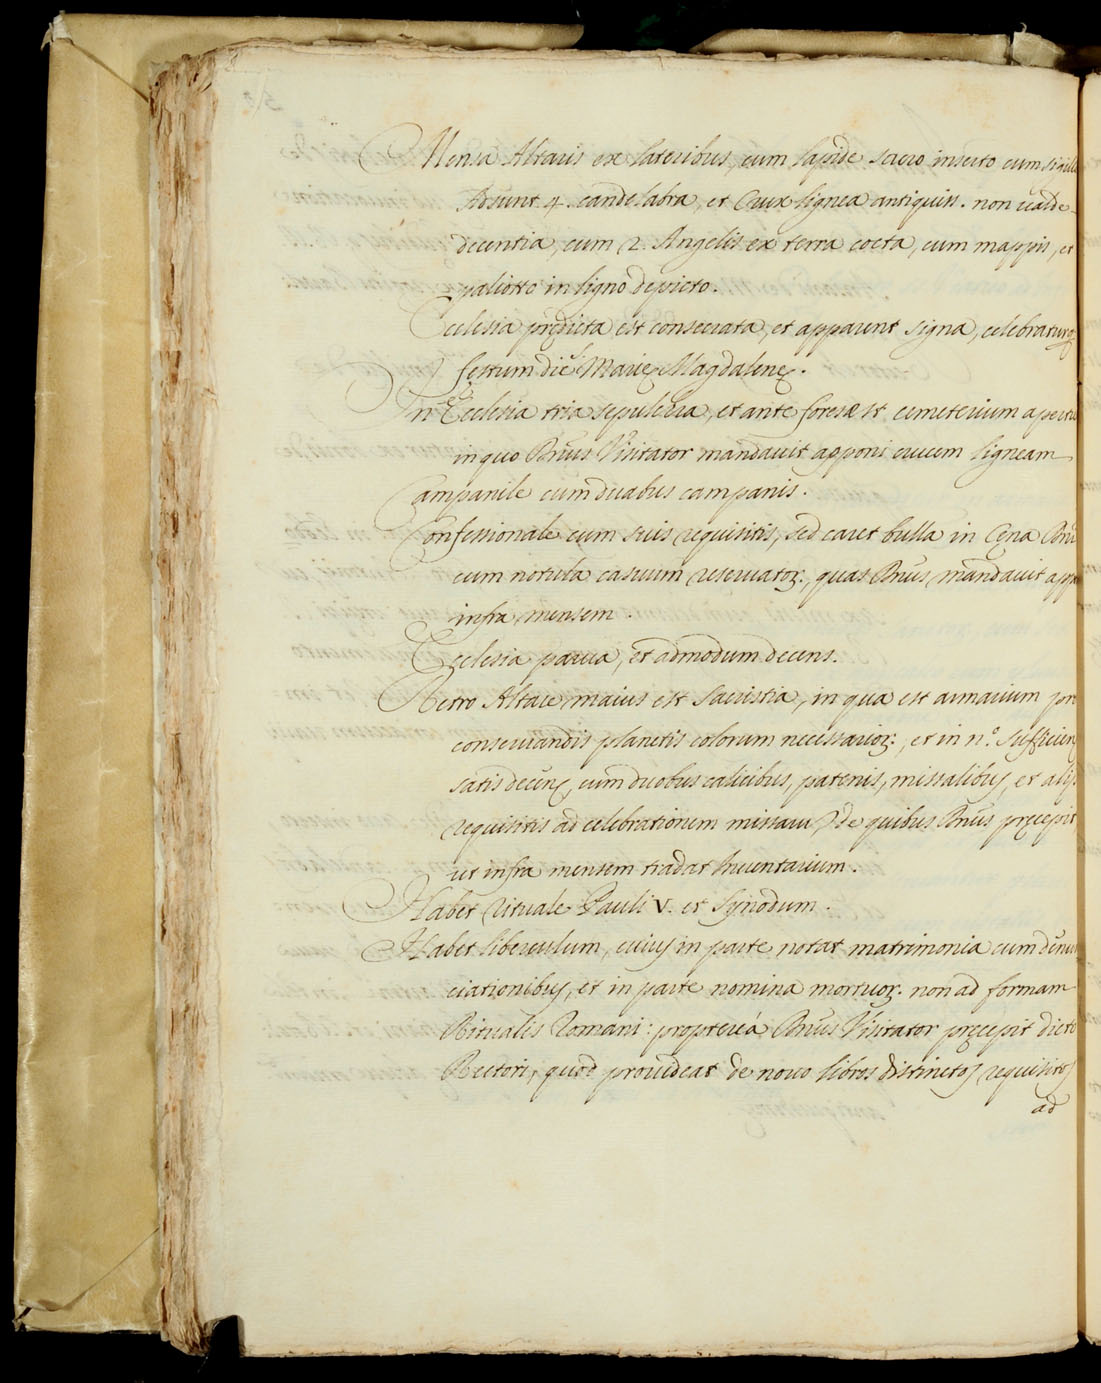 Mensa Altaris ex lateribus, cum lapide sacro inserto cum sigillo
Adsunt 4. candelabra, et Crux lignea antiquiss. non valde
decentia, cum 2. Angelis ex terra cocta, cum mappis, et
paliotto in ligno depicto.
Ecclesia prędicta est consecrata, et apparent signa, celebraturq;
festum diē Marię Magdalenę.
In Ecclesia tria sepulcra, et ante fores est cemeterium apertū
in quo Rm̄us Visitator mandavit apponi crucem ligneam
Campanile cum duabus campanis.
Confessionale cum suis requisitis, sed caret bulla in Cęna Dnī
cum notula casuum reservatoꝝ., quas Rm̄us mandavit app
infra mensem.
Ecclesia parva, et admodum decens.
Retro Altare maius est Sacristia, in qua est armarium pro
conservandis planetis colorum necessarioꝝ:, et in n.º sufficien
satis decen, cum duobus calicibus, patenis, missalibus, et alijs
requisitis ad celebrationem missaru, de quibus Rm̄us pręcepit
ut infra mensem tradat Inventarium.
Habet rituale Pauli V. et Synodum.
Habet liberculum, cuius in parte notat matrimonia cum denun
ciationibus, et in parte nomina mortuoꝝ. non ad formam
Ritualis Romani: proptereá Rm̄us Visitator pręcepit dicto
Rectori, quod provideat de novo libros distinctos requisitos
ad